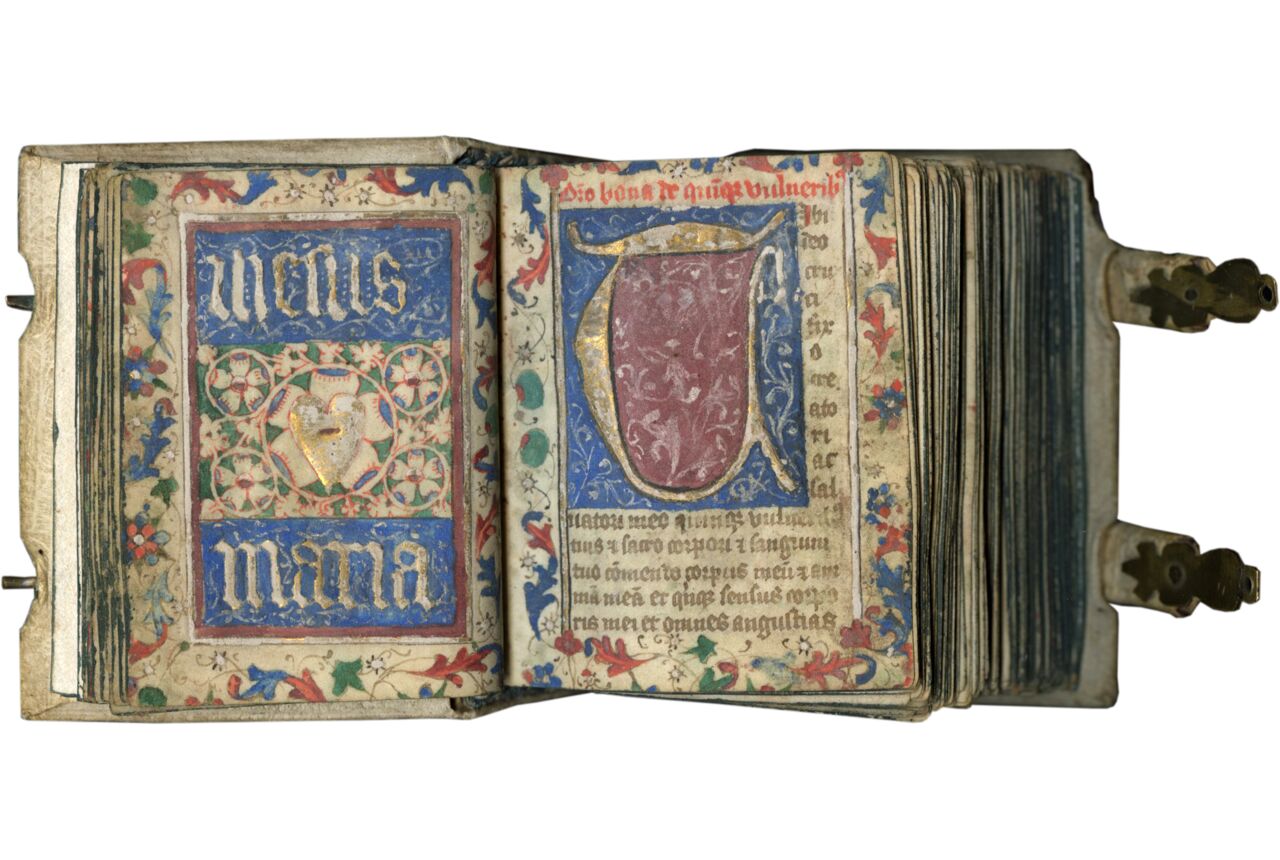 ihesus
maria
Oro bona de quīqꝫ vulneribꝰ
Ibi
deo
cru
ci
fix
o
cre
ato
ri
ac
sal
uatori meo quinqꝫ vulneribꝫ
tuis ⁊ sacro corpori ⁊ sanguini
tuo cōmendo corpus meū ⁊ ani
mā meā et qnqꝫ sensus corpo
ris mei et omnes angustias